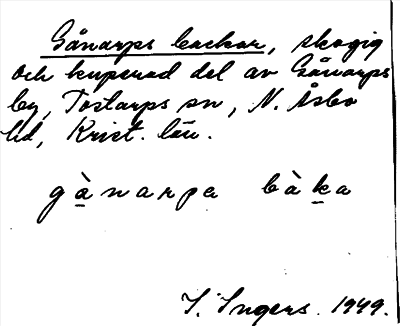 Gånarps backar, skogig
och kuperad del av Gånarps
by, Tostarps sn, N. Åsbo
hd, Krist. län.
gànarpa bàka
I. Ingers. 1949.